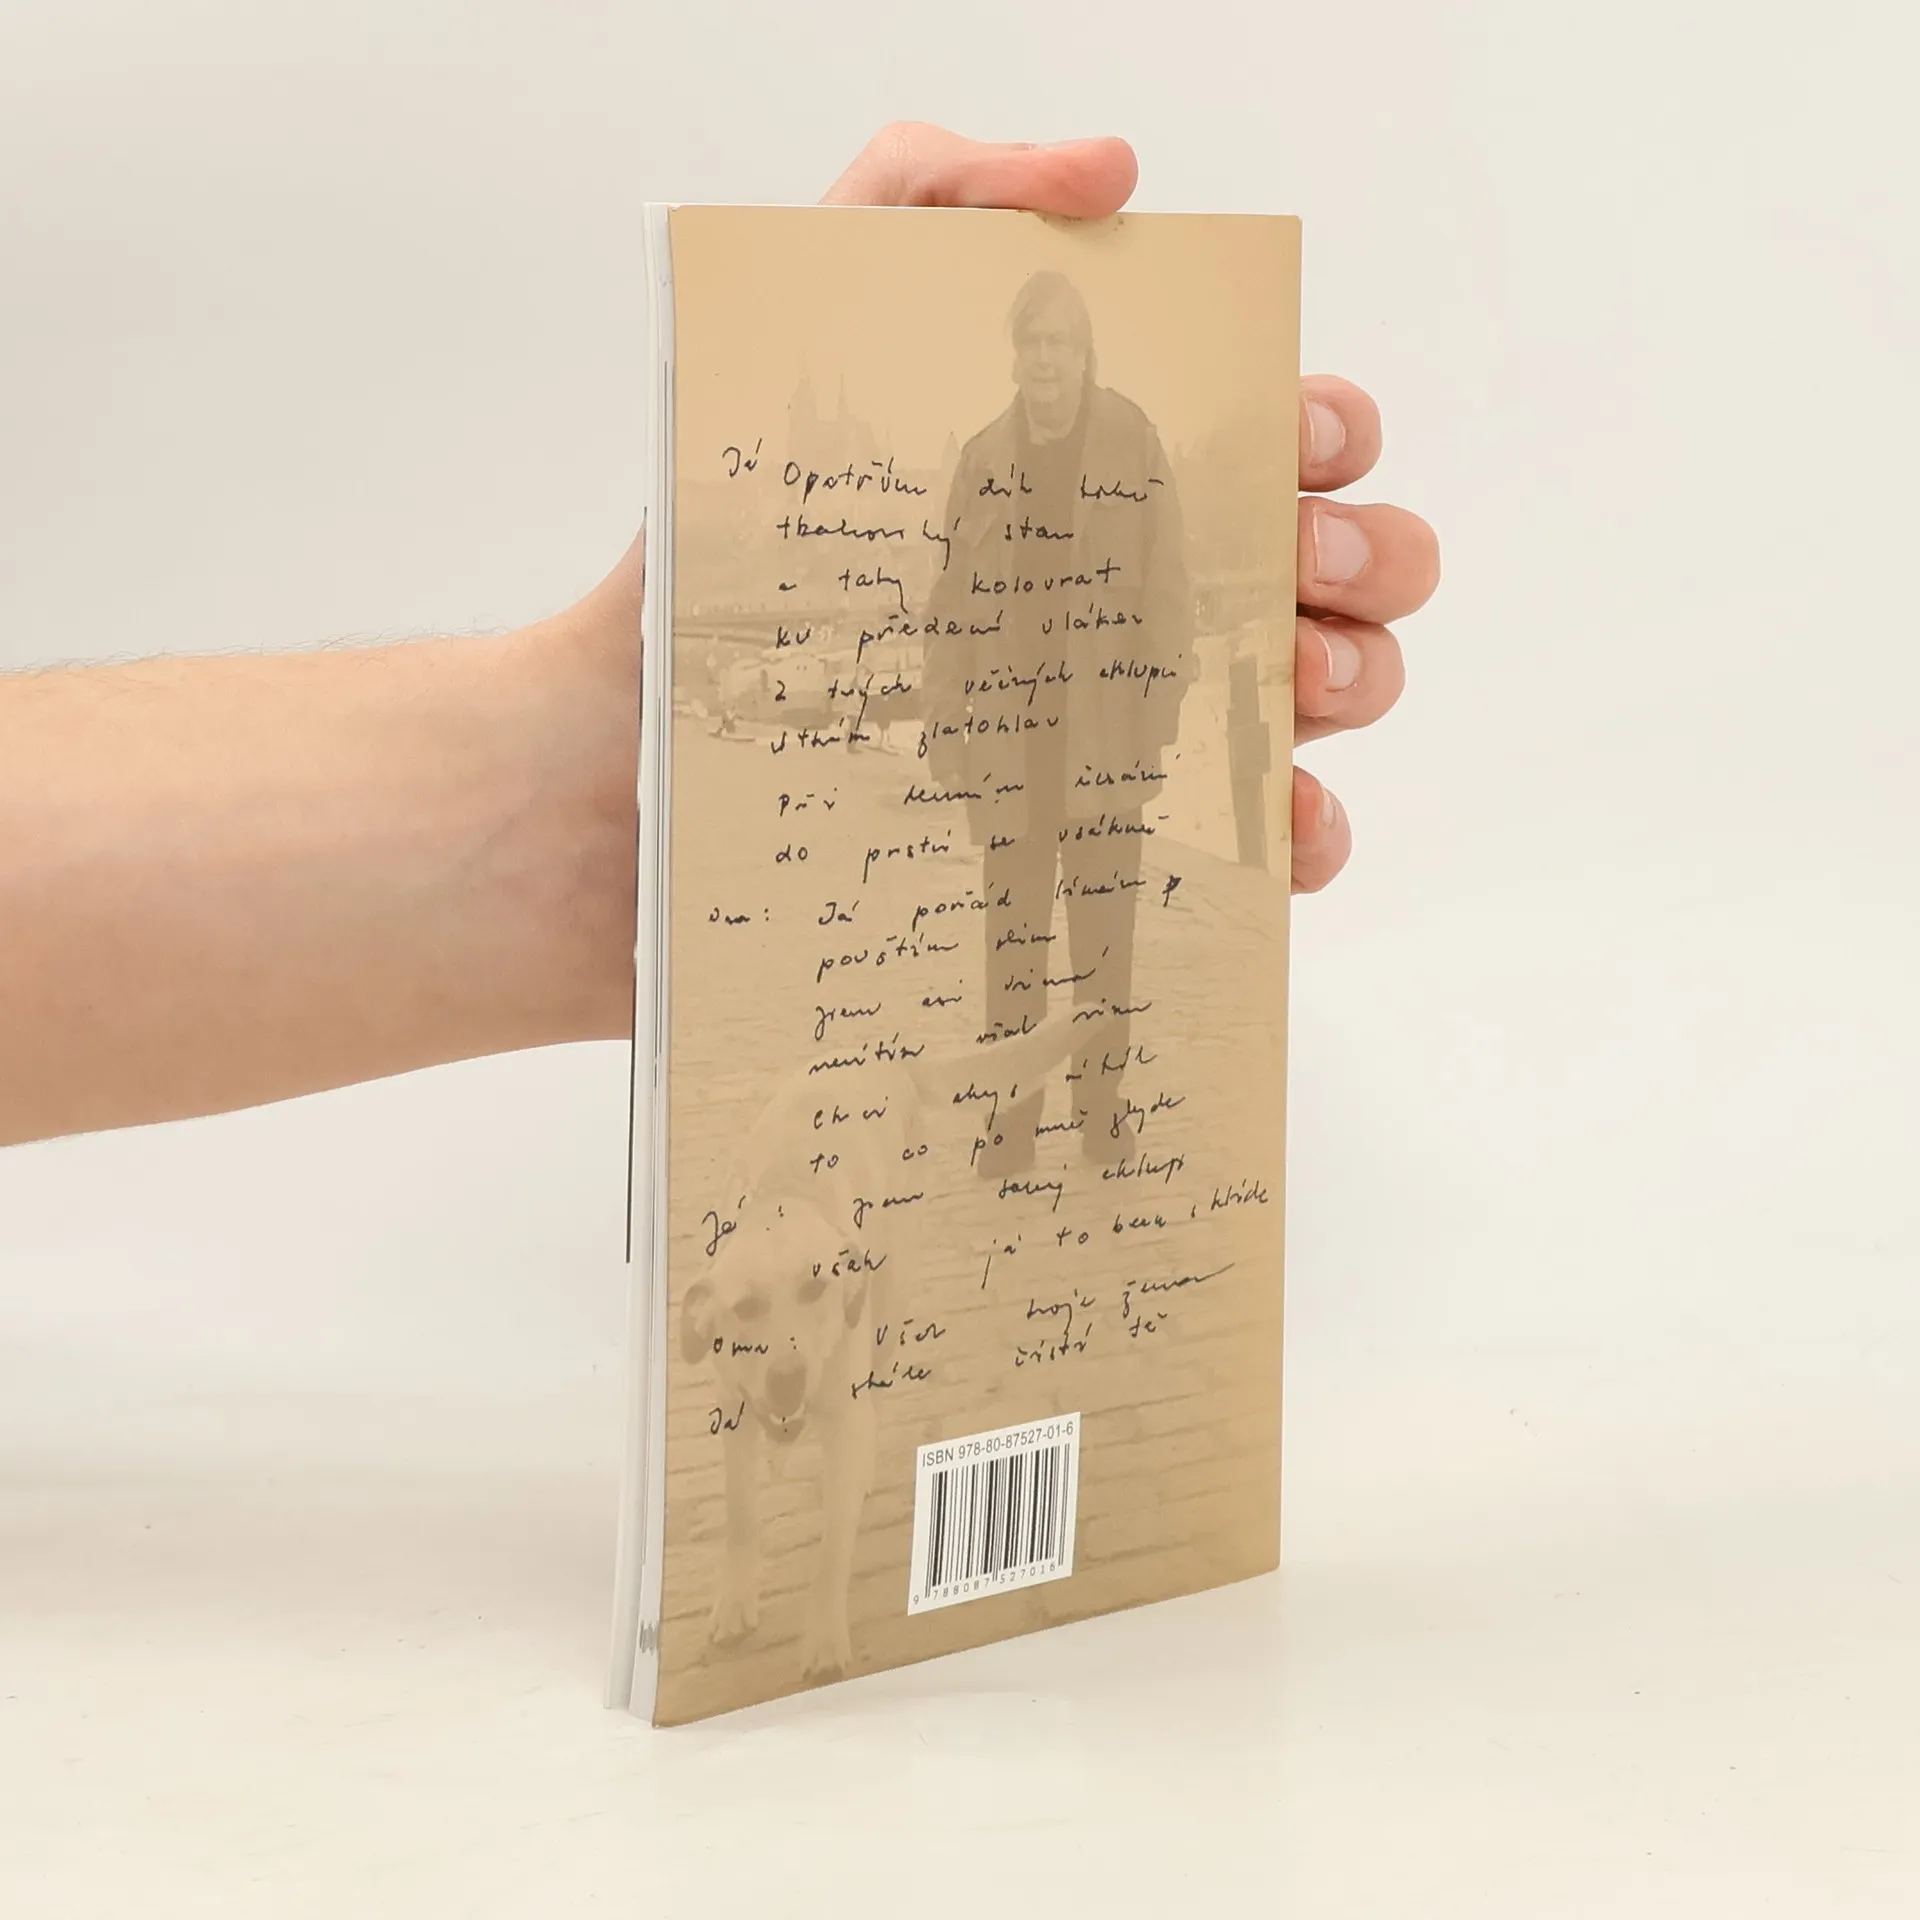 Já Opatřím
tkalcovský stav
a taky kolovrat
ku předení vláken
z tvých věčných chlupů
utkám zlatohlav
Při denním česání
do prstů se vsákneš
Ona: Já pořád línám
pouštím
jsem asi
necítím však vinu
Chci abys
to co po mně zbyde
Já: jsem samý chlup
však já to beru s klidem
Ona: Však tvoje žena
stále čistí tě
Já:
ISBN 978-80-87527-01-6
9 788087 527016